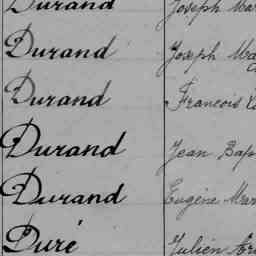 Durand Joseph Mar
Durand Joseph Ma
Durand Francois
Durand Jean Bap
Durand Eugène Mar
Duré Julien